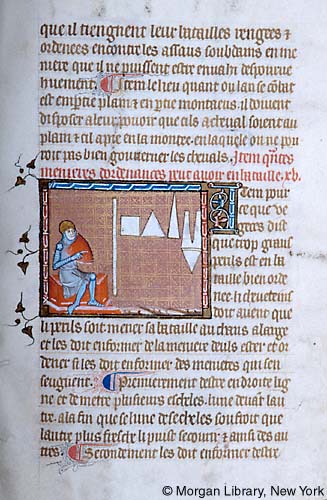 que il tiengnent leur batailles rengees et
ordenees encontre les assaus soubdains en me
niere que il ne puissent estre envahi despourve
huement. Item se lieu quant ou lan se cōbat
est en ptie plain et en ptie montaeus. il doivent
disposer aleur pouoir que cils a cheual soient au
plain et cil a pie en la montee. en laquele on ne po
roit pas bien gouuerner les cheuals. Item qūtes
menieres dordenances peut auoir en bataille. xv.
Item pour
ce que ve
geces dist
que trop grans
perils est en ba
taille bien orde
nee
soit auent que
li perils soit mener sa bataille au chans alarge
et les doit enformer de la maniere deuls et or
dener si les doit enformer des manieres qui sen
seuguient. Premierement destre en droite lig
ne et de metre plusieurs escheles. lune deuant lau
tre. ala fin que se lune des escheles souffroit que
lautre plus fresche li puist secourir. et ainsi des au
tres. Secondement les doit enformer destre
© Morgan Library, New York